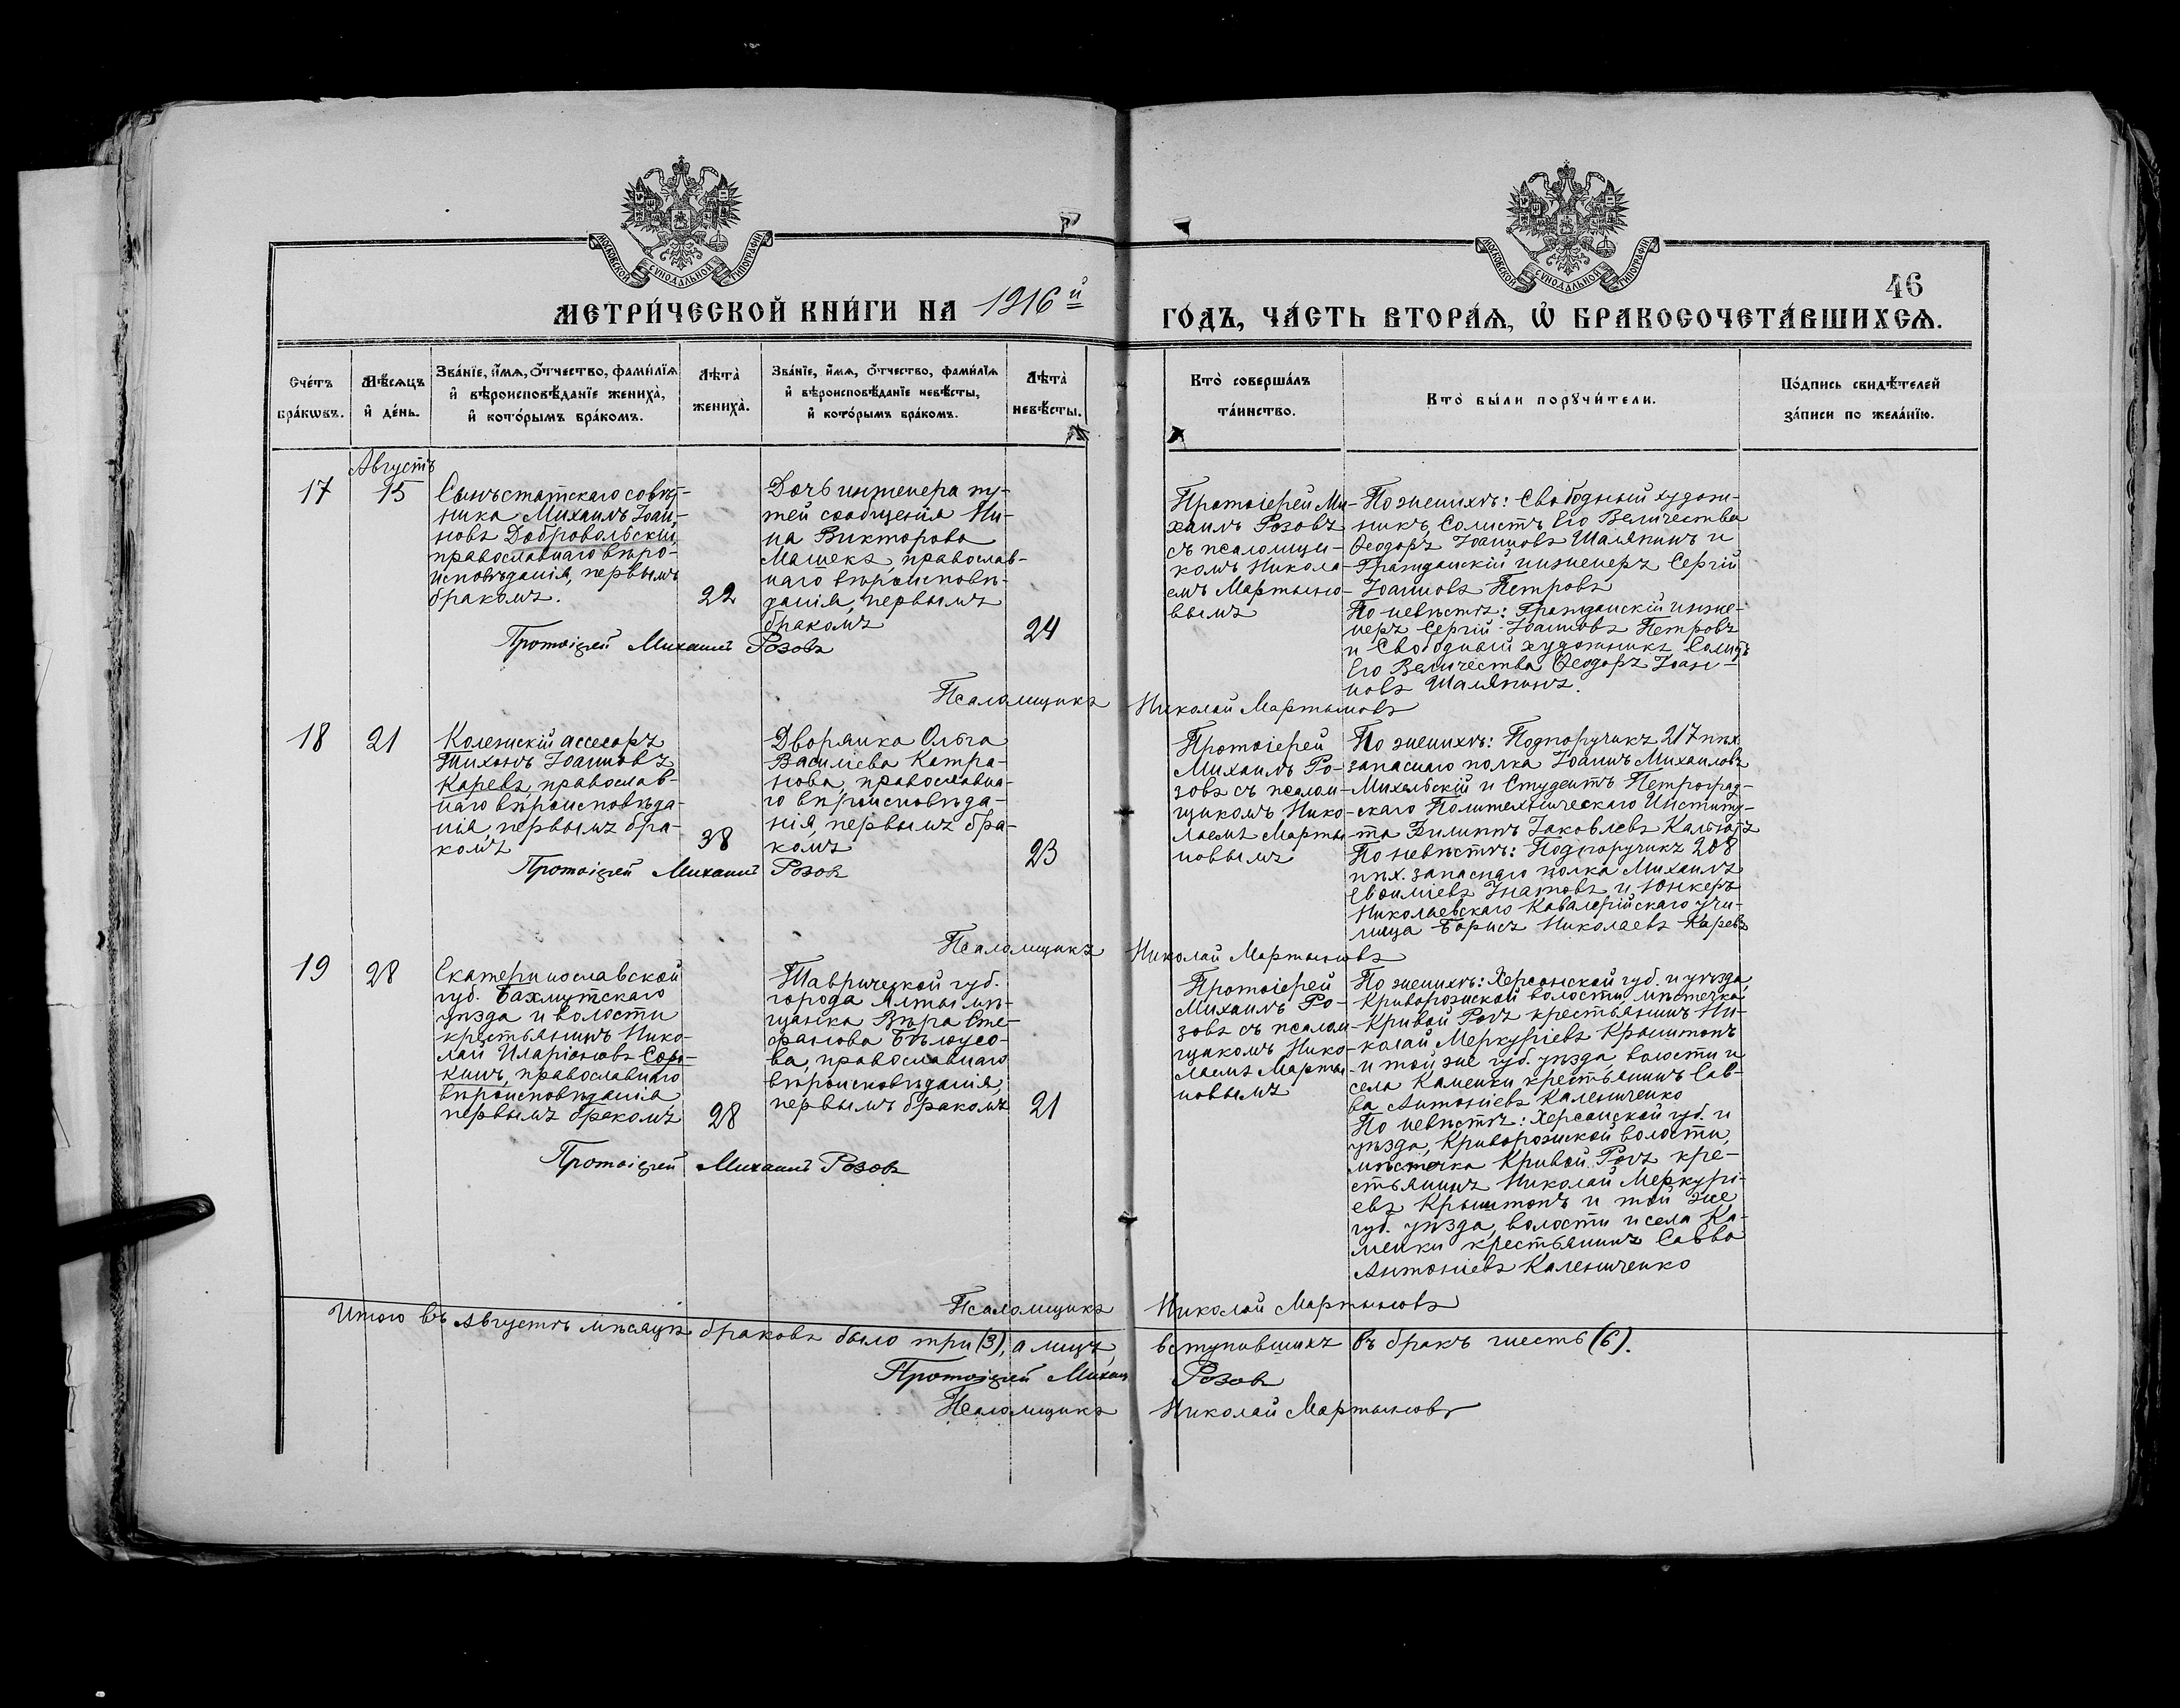 МОСКОВСКОЙ СУНОДАЛЬНОЙ ТИПОГРАФІИ
МОСКОВСКОЙ СУНОДАЛЬНОЙ ТИПОГРАФІИ
46
МЕТРИ́ЧЕСКОЙ КНИ́ГИ НА 1916й
ГО́ДЪ, ЧА́СТЬ ВТОРА́Ѧ, Ѽ БРАКОСОЧЕТА́ВШИХСѦ.
Сче́тъ
бра́кѡвъ.
Мѣ́сѧцъ
и҆ де́нь.
Зва́нїе, и҆́мѧ, ѻ҆́тчество, фами́лїѧ
и҆ вѣроисповѣ́данїе жениха̀,
и҆ кото́рымъ бра́комъ.
Лѣта̀
жениха̀.
Зва́нїе, и҆́мѧ, ѻ҆́тчество, фами́лїѧ
и҆ вѣроисповѣ́данїе невѣ́сты,
и҆ кото́рымъ бра́комъ.
Лѣта̀
невѣ́сты.
Кто̀ соверша́лъ
та́инство.
Кто̀ бы́ли порꙋчи́тели.
По́дпись свидѣ́телей
за́писи по жела́нїю.
Августъ
17
15
Сынъ статскаго совѣт-
ника Михаилъ Іоан-
новъ Добровольскій,
православнаго вѣро-
исповѣданія, первымъ
бракомъ.
22
Дочь инженера пу-
тей сообщенія Ни-
на Викторова
Машекъ, православ-
наго вѣроисповѣ-
данія, первымъ
бракомъ
24
Протоіерей Ми-
хаилъ Розовъ
съ псаломщи-
комъ Никола-
емъ Мартыно-
вымъ
По женихѣ: Свободный худож-
никъ, Солистъ Его Величества
Ѳеодоръ Іоанновъ Шаляпинъ и
Гражданскій инженеръ Сергій
Іоанновъ Петровъ
По невѣстѣ: Гражданскій инже-
неръ Сергій Іоанновъ Петровъ
и Свободный художникъ Солистъ
Его Величества Ѳеодоръ Іоан-
новъ Шаляпинъ.
Протоіерей Михаилъ Розовъ
Псаломщикъ Николай Мартыновъ
18
21
Колежскій ассесоръ
Тихонъ Іоанновъ
Каревъ, православ-
наго вѣроисповѣда-
нія, первымъ бра-
комъ
38
Дворянка Ольга
Василіева Катра-
нова, православна-
го вѣроисповѣда-
нія, первымъ бра-
комъ
23
Протоіерей
Михаилъ Ро-
зовъ съ псалом-
щикомъ Нико-
лаемъ Марты-
новымъ
По женихѣ: Подпоручикъ 217 пѣх.
запаснаго полка Іоаннъ Михаиловъ
Михельскій и Студентъ Петроград-
скаго Политехническаго Институ-
та Филиппъ Іаковлевъ
По невѣстѣ: Подпоручикъ 208
пѣх. запаснаго полка Михаилъ
Евѳиміевъ Игнатовъ и Юнкеръ
Николаевскаго Кавалерійскаго учи-
лища Борисъ Николаевъ Каревъ
Протоіерей Михаилъ Розовъ
Псаломщикъ Николай Мартыновъ
19
28
Екатеринославской
губ. Бахмутскаго
уѣзда и волости
крестьянинъ Нико-
лай Иларіоновъ Соро-
кинъ, православнаго
вѣроисповѣданія,
первымъ бракомъ
28
Таврической губ.
города Ялты мѣ-
щанка Вѣра Сте-
фанова Бѣлоусо-
ва, православнаго
вѣроисповѣданія,
первымъ бракомъ
21
Протоіерей
Михаилъ Ро-
зовъ съ псалом-
щикомъ Нико-
лаемъ Марты-
новымъ
По женихѣ: Херсонской губ. и уѣзда,
Криворожской волости, мѣстечка
Кривой Рогъ крестьянинъ Ни-
колай Меркуріевъ Крыштопъ
и той же губ. уѣзда, волости и
села Каменки крестьянинъ Сав-
ва Антоніевъ Калениченко
По невѣстѣ: Херсонской губ. и
уѣзда, Криворожской волости,
мѣстечка Кривой Рогъ кре-
стьянинъ Николай Меркурі-
евъ Крыштопъ и той же
губ. уѣзда, волости и села Ка-
менки крестьянинъ Савва
Антоніевъ Калениченко
Протоіерей Михаилъ Розовъ
Псаломщикъ Николай Мартыновъ
Итого въ Августѣ мѣсяцѣ браковъ было три (3), а лицъ, вступившихъ въ бракъ шесть (6).
Протоіерей Михаилъ Розовъ
Псаломщикъ Николай Мартыновъ